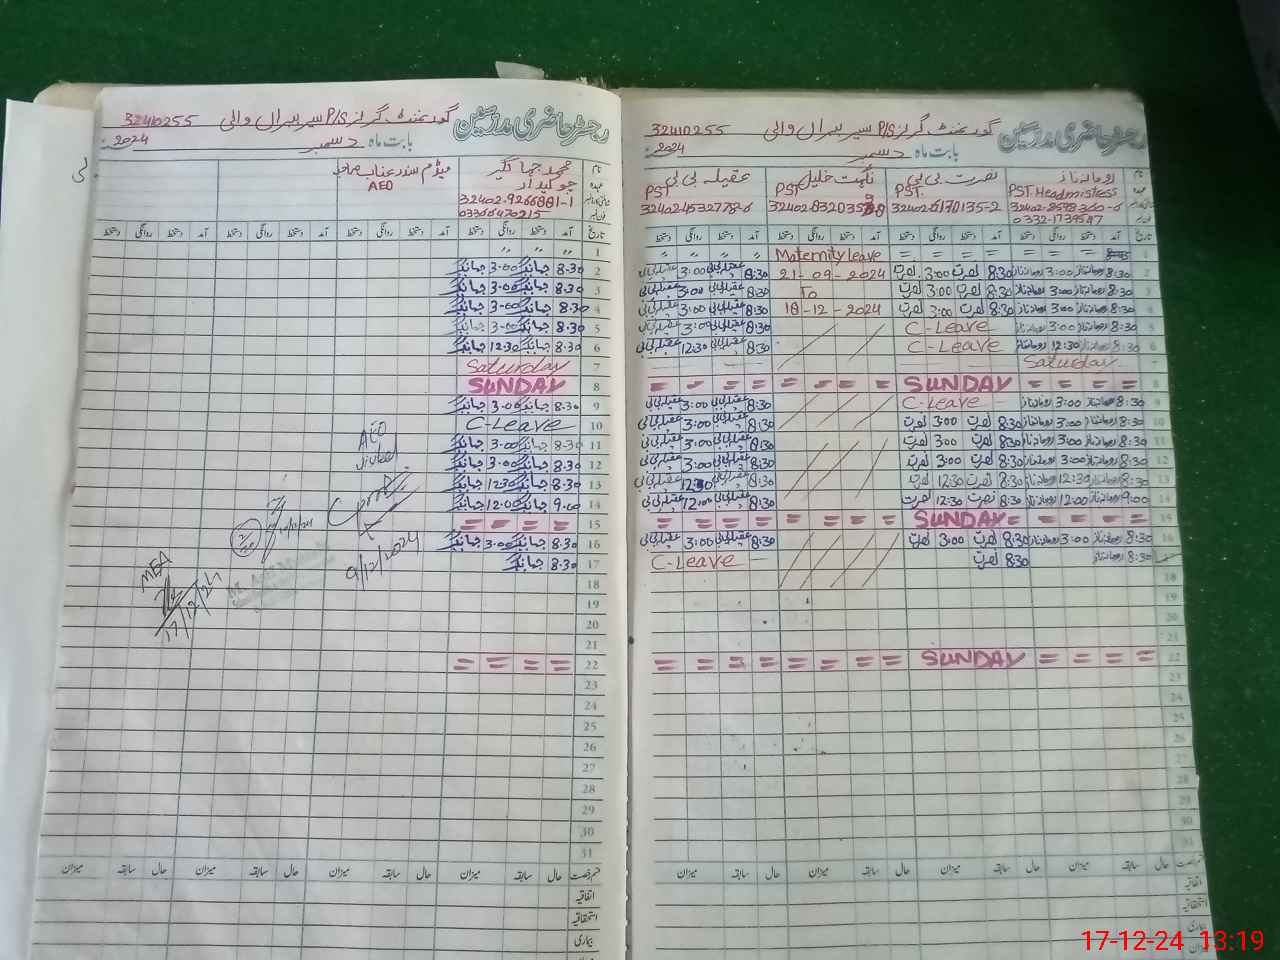 رجسٹر حاضری مدرسین گورنمنٹ گرلز P/S 32410255
بابت ماہ دسمبر 2024
محمد جہانگیر
چوکیدار
میڈم
AEO
تاریخ آمد دستخط روانگی دستخط آمد دستخط روانگی دستخط آمد دستخط روانگی دستخط آمد دستخط روانگی دستخط
1 " "
2 8:30 جہانگیر 3:00 جہانگیر
3 8:30 جہانگیر 3:00 جہانگیر
4 8:30 جہانگیر 3:00 جہانگیر
5 8:30 جہانگیر 3:00 جہانگیر
6 8:30 جہانگیر 12:30 جہانگیر
7 Saturday
8 SUNDAY
9 8:30 جہانگیر 3:00 جہانگیر
10 C-Leave
11 8:30 جہانگیر 3:00 جہانگیر
12 8:30 جہانگیر 3:00 جہانگیر
13 8:30 جہانگیر 12:30 جہانگیر
14 9:00 جہانگیر 12:00 جہانگیر
15 = = = =
16 8:30 جہانگیر 3:00 جہانگیر
17 8:30 جہانگیر
18
19
20
21
22 = = = =
23
24
25
26
27
28
29
30
31
AEO
9/12/2024
MEA
17/12/24
قسم رخصت حال سابقہ میزان حال سابقہ میزان حال سابقہ میزان حال سابقہ میزان
اتفاقیہ
استحقاقیہ
بیماری
رجسٹر حاضری مدرسین گورنمنٹ گرلز P/S 32410255
بابت ماہ دسمبر 2024
نام رومانہ ناز نصرت بی بی نگہت خلیل عقیلہ بی بی
عہدہ PST Headmistress PST PST PST
32402-6170135-2
تاریخ آمد دستخط روانگی دستخط آمد دستخط روانگی دستخط آمد دستخط روانگی دستخط آمد دستخط روانگی دستخط
1 = = = = = = = Maternity leave " " " "
2 8:30 رومانہ ناز 3:00 رومانہ ناز 8:30 نصرت 3:00 نصرت 21-09-2024 8:30 عقیلہ بی بی 3:00 عقیلہ بی بی
3 8:30 رومانہ ناز 3:00 رومانہ ناز 8:30 نصرت 3:00 نصرت To 8:30 عقیلہ بی بی 3:00 عقیلہ بی بی
4 8:30 رومانہ ناز 3:00 رومانہ ناز 8:30 نصرت 3:00 نصرت 18-12-2024 8:30 عقیلہ بی بی 3:00 عقیلہ بی بی
5 8:30 رومانہ ناز 3:00 رومانہ ناز C-Leave 8:30 عقیلہ بی بی 3:00 عقیلہ بی بی
6 8:30 رومانہ ناز 12:30 رومانہ ناز C-Leave 8:30 عقیلہ بی بی 12:30 عقیلہ بی بی
7 Saturday
8 = = = = SUNDAY = = = = = = = =
9 8:30 رومانہ ناز 3:00 رومانہ ناز C-Leave 8:30 عقیلہ بی بی 3:00 عقیلہ بی بی
10 8:30 رومانہ ناز 3:00 رومانہ ناز 8:30 نصرت 3:00 نصرت 8:30 عقیلہ بی بی 3:00 عقیلہ بی بی
11 8:30 رومانہ ناز 3:00 رومانہ ناز 8:30 نصرت 3:00 نصرت 8:30 عقیلہ بی بی 3:00 عقیلہ بی بی
12 8:30 رومانہ ناز 3:00 رومانہ ناز 8:30 نصرت 3:00 نصرت 8:30 عقیلہ بی بی 3:00 عقیلہ بی بی
13 8:30 رومانہ ناز 12:30 رومانہ ناز 8:30 نصرت 12:30 نصرت 8:30 عقیلہ بی بی 12:30 عقیلہ بی بی
14 9:00 رومانہ ناز 12:00 رومانہ ناز 8:30 نصرت 12:30 نصرت 8:30 عقیلہ بی بی 12:00 عقیلہ بی بی
15 = = = = SUNDAY = = = = = = = =
16 8:30 رومانہ ناز 3:00 رومانہ ناز 8:30 نصرت 3:00 نصرت 8:30 عقیلہ بی بی 3:00 عقیلہ بی بی
17 8:30 رومانہ ناز 8:30 نصرت C-Leave
18
19
20
21
22 = = = = SUNDAY = = = = = = = =
23
24
25
26
27
28
29
30
31
قسم رخصت حال سابقہ میزان حال سابقہ میزان حال سابقہ میزان حال سابقہ میزان
اتفاقیہ
استحقاقیہ
بیماری
17-12-24 13:19